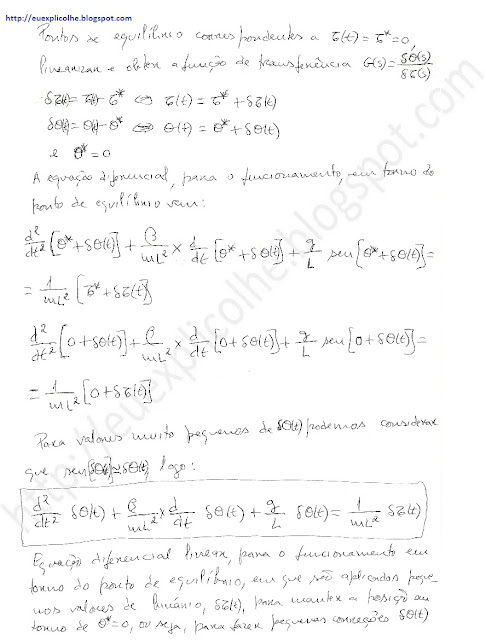 http://euexplicolhe.blogspot.com
Pontos de equilíbrio correspondentes a τ(t) = τ* = 0
linearizar e obter a função de transferência G(s) = δΘ(s)/δτ(s)
δτ(t) = τ(t) - τ* ⇔ τ(t) = τ* + δτ(t)
δθ(t) = θ(t) - θ* ⇔ θ(t) = θ* + δθ(t)
e θ* = 0
A equação diferencial, para o funcionamento, em torno do
ponto de equilíbrio vem:
d²/dt² [θ* + δθ(t)] + β/mL² × d/dt [θ* + δθ(t)] + g/L sen[θ* + δθ(t)] =
= 1/mL² [τ* + δτ(t)]
d²/dt² [0 + δθ(t)] + β/mL² × d/dt [0 + δθ(t)] + g/L sen[0 + δθ(t)] =
= 1/mL² [0 + δτ(t)]
Para valores muito pequenos de δθ(t) podemos considerar
que sen[δθ(t)] ≅ δθ(t), logo:
d²/dt² δθ(t) + β/mL² × d/dt δθ(t) + g/L δθ(t) = 1/mL² δτ(t)
Equação diferencial linear, para o funcionamento em
torno do ponto de equilíbrio, em que são aplicados peque
nos valores de binário, δτ(t), para manter a posição em
torno de θ* = 0, ou seja, para fazer pequenas correcções δθ(t)
http://euexplicolhe.blogspot.com